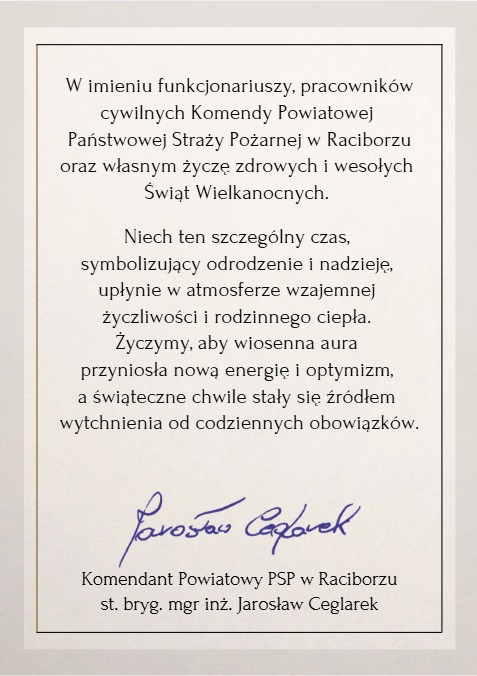 W imieniu funkcjonariuszy, pracowników
cywilnych Komendy Powiatowej
Państwowej Straży Pożarnej w Raciborzu
oraz własnym życzę zdrowych i wesołych
Świąt Wielkanocnych.
Niech ten szczególny czas,
symbolizujący odrodzenie i nadzieję,
upłynie w atmosferze wzajemnej
życzliwości i rodzinnego ciepła.
Życzymy, aby wiosenna aura
przyniosła nową energię i optymizm,
a świąteczne chwile stały się źródłem
wytchnienia od codziennych obowiązków.
Jarosław Ceglarek
Komendant Powiatowy PSP w Raciborzu
st. bryg. mgr inż. Jarosław Ceglarek